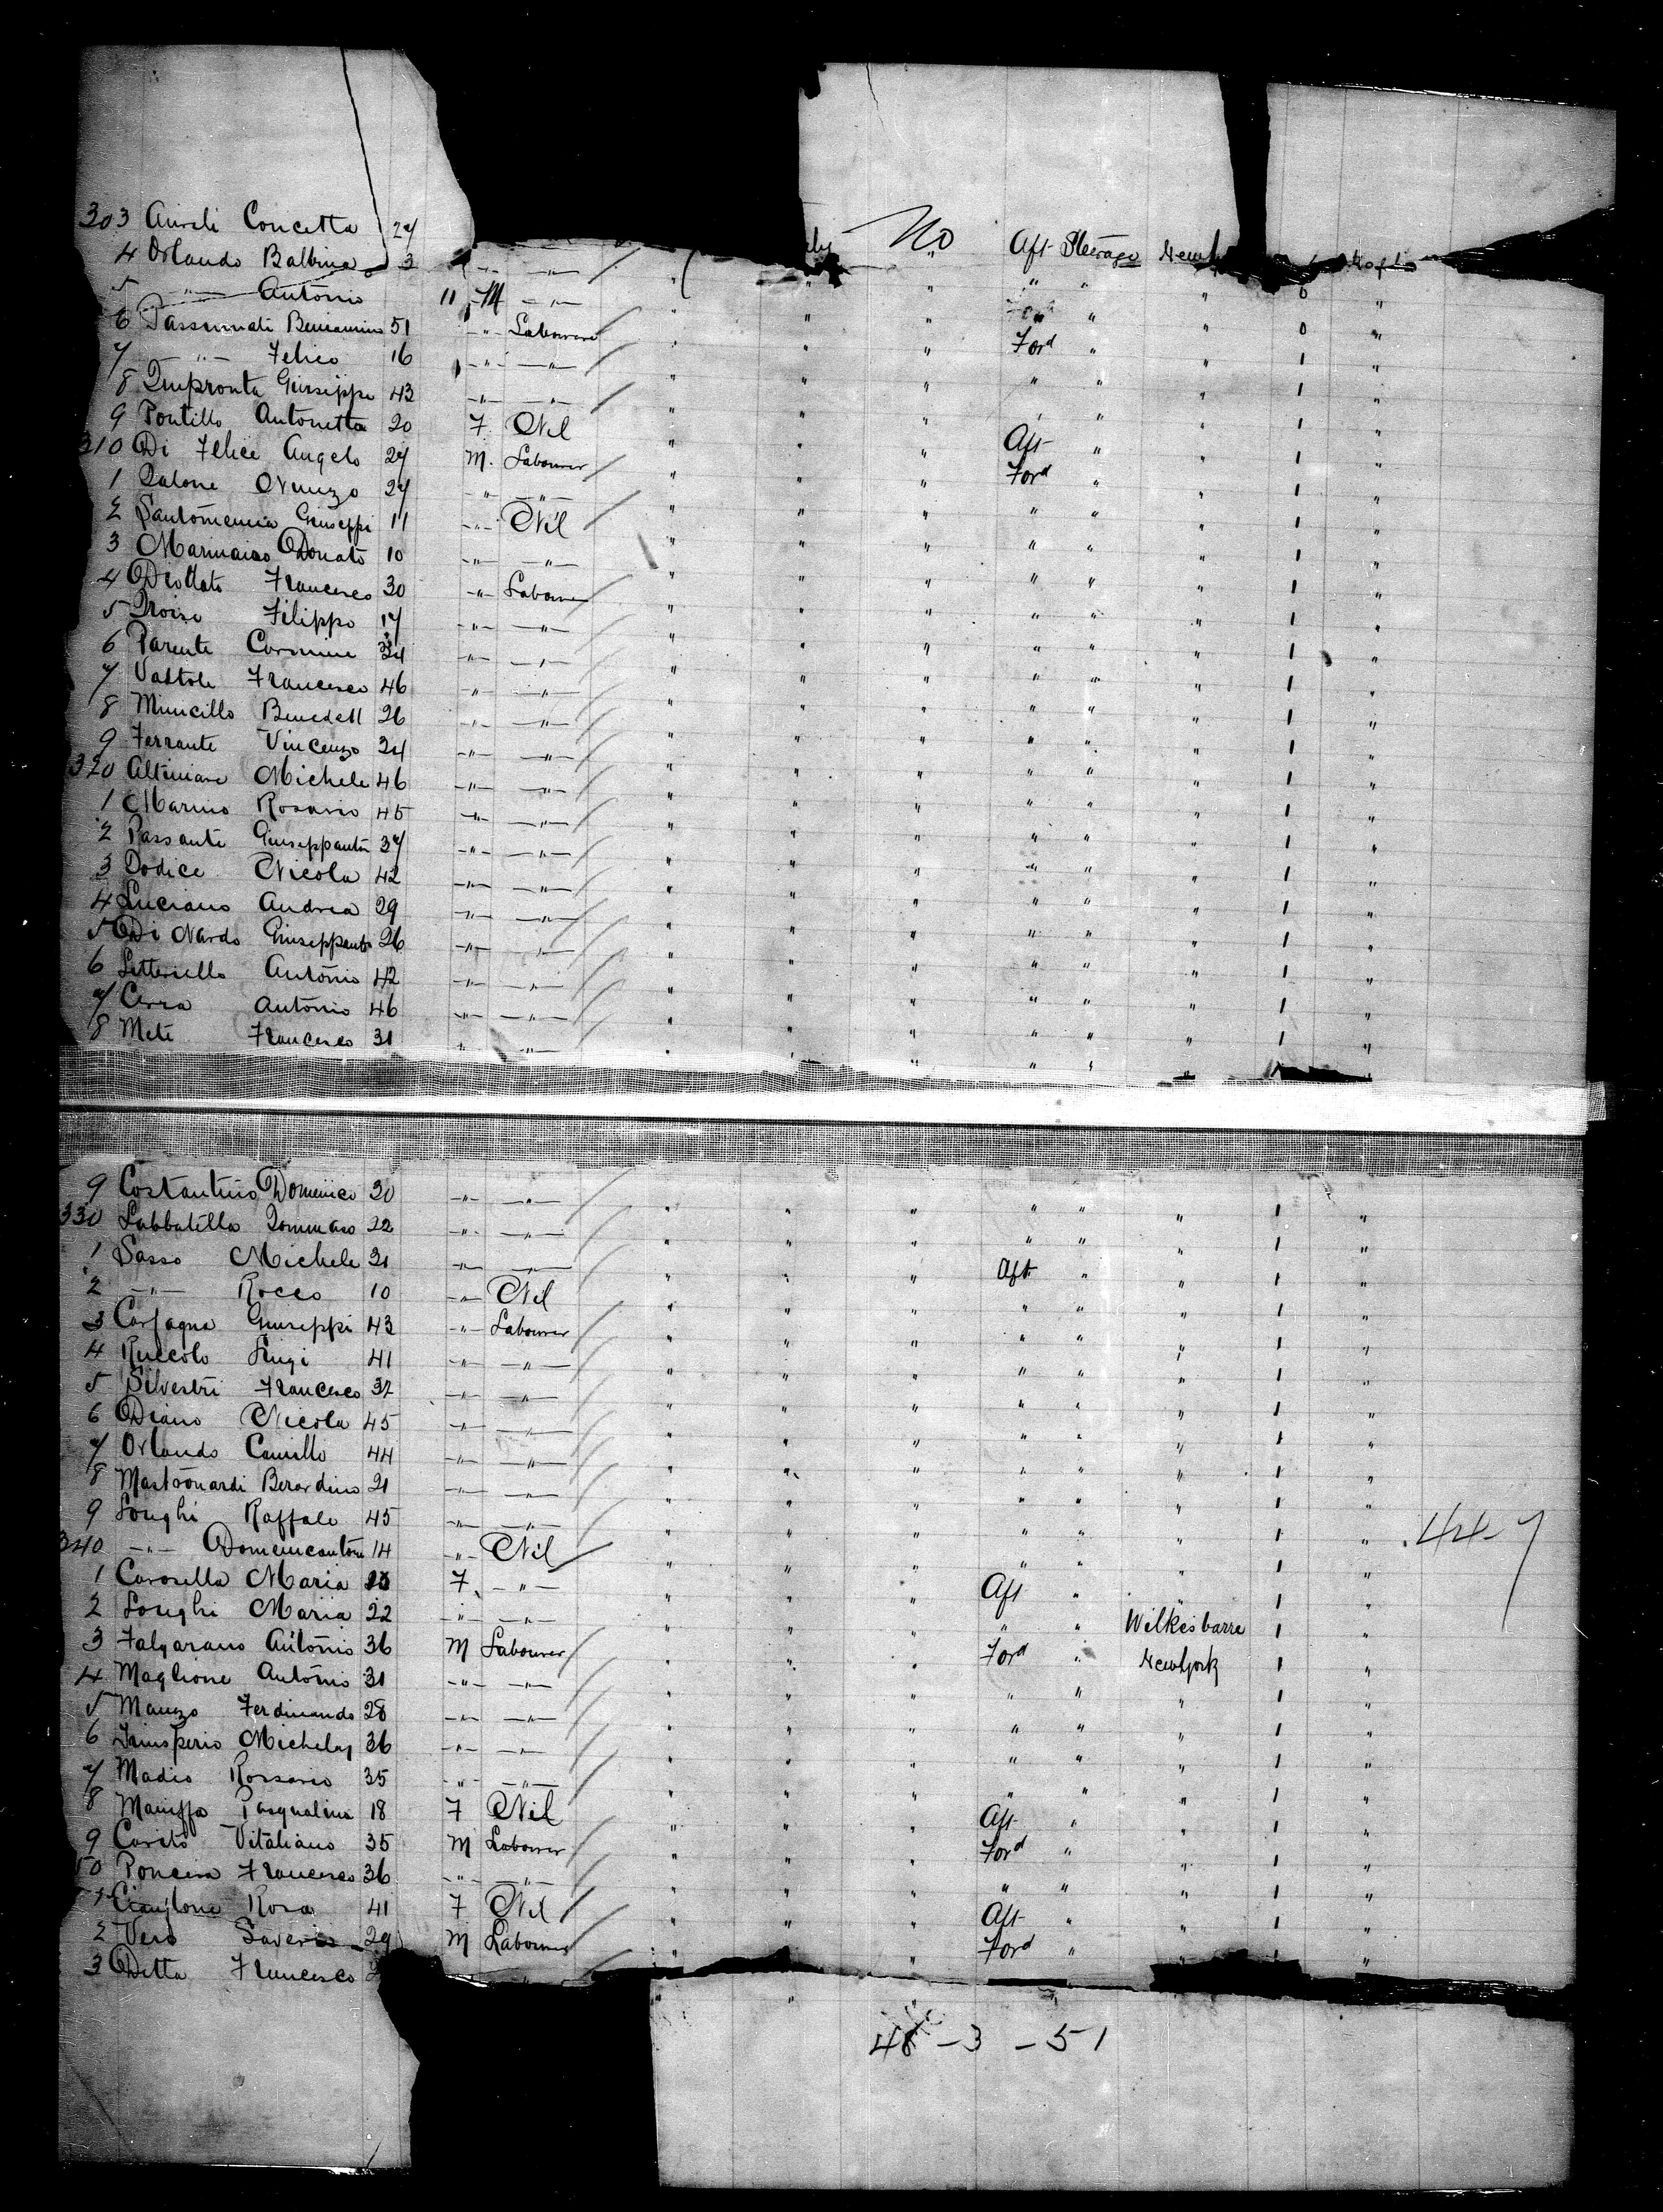 303 Aureli Concetta 27 No Aft Steerage New
4 Orlando Balbina 3 " "
5 " Antonio 11 M " " " " " " 0 "
6 Passunati Beniamino 51 " Labourer " " " Ford " " 0 "
7 " Felice 16 " " " " " " " " 1 "
8 Impronta Giuseppe 43 " " " " " " " " 1 "
9 Pontillo Antonetta 20 F Nil " " " Aft " " 1 "
310 Di Felice Angelo 27 M. Labourer " " " Ford " " 1 "
1 Palone Nunzo 27 " " " " " " " " 1 "
2 Santomenia Giuseppi 11 " Nil " " " " " " 1 "
3 Marinaro Donato 10 " " " " " " " " 1 "
4 Diottato Francesco 30 " Labourer " " " " " " 1 "
5 Troise Filippo 17 " " " " " " " " 1 "
6 Parente Carmine 34 " " " " " " " " 1 "
7 Vattole Francesco 46 " " " " " " " " 1 "
8 Muncillo Benedett 26 " " " " " " " " 1 "
9 Ferrante Vincenzo 24 " " " " " " " " 1 "
320 Altimare Michele 46 " " " " " " " " 1 "
1 Marino Rosario 45 " " " " " " " " 1 "
2 Passante Giuseppantō 37 " " " " " " " " 1 "
3 Dodice Nicola 42 " " " " " " " " 1 "
4 Luciano Andrea 29 " " " " " " " " 1 "
5 Di Nardo Giuseppanto 26 " " " " " " " " 1 "
6 Letteriello Antonio 42 " " " " " " " " 1 "
7 Cerra Antonio 46 " " " " " " " " 1 "
8 Mete Francesco 31 " " " " " " " " 1 "
9 Costantino Domenico 30 " " " " " " " " 1 "
330 Labbatella Tommaso 22 " " " " " " " " 1 "
1 Sasso Michele 31 " " " " " Aft " " 1 "
2 " Rocco 10 " Nil " " " " " " 1 "
3 Carfagna Giuseppi 43 " Labourer " " " " " " 1 "
4 Ruccolo Luigi 41 " " " " " " " " 1 "
5 Silvestri Francesco 32 " " " " " " " " 1 "
6 Diano Nicola 45 " " " " " " " " 1 "
7 Orlando Camillo 44 " " " " " " " " 1 "
8 Mastronardi Berardino 21 " " " " " " " " 1 "
9 Longhi Raffale 45 " " " " " " " " 1 "
340 " Domenicantōn 14 " Nil " " " " " " 1 " 44-7
1 Carosella Maria F " " " " Aft " " 1 "
2 Longhi Maria 22 " " " " " " " Wilkesbarre 1 "
3 Falgarano Antonio 36 M Labourer " " " Ford " New York 1 "
4 Maglione Antonio 31 " " " " " " " " 1 "
5 Manzo Ferdinando 28 " " " " " " " " 1 "
6 Michelang 36 " " " " " " " " 1 "
7 Madio Rossario 35 " " " " " " " " 1 "
8 Maniffa Pasqualina 18 F Nil " " " Aft " " 1 "
9 Carito Vitaliano 35 M Labourer " " " Ford " " 1 "
50 Poncera Francesco 36 " " " " " " " " 1 "
1 Cianflone Rosa 41 F Nil " " " Aft " " 1 "
2 Vero Saverio 29 M Labourer " " " Ford " " 1 "
3 Ditta Francesco
48 - 3 - 51